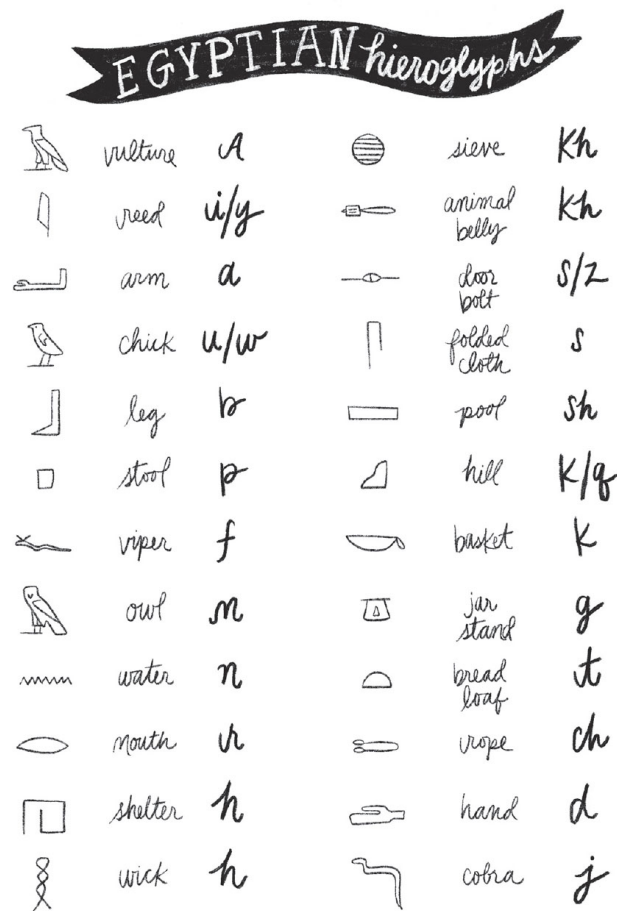 EGYPTIAN hieroglyphs
vulture A
reed i/y
arm a
chick u/w
leg b
stool p
viper f
owl m
water n
mouth r
shelter h
wick h
sieve Kh
animal
belly Kh
door
bolt S/Z
folded
cloth s
pool sh
hill K/q
basket K
jar
stand g
bread
loaf t
rope ch
hand d
cobra j